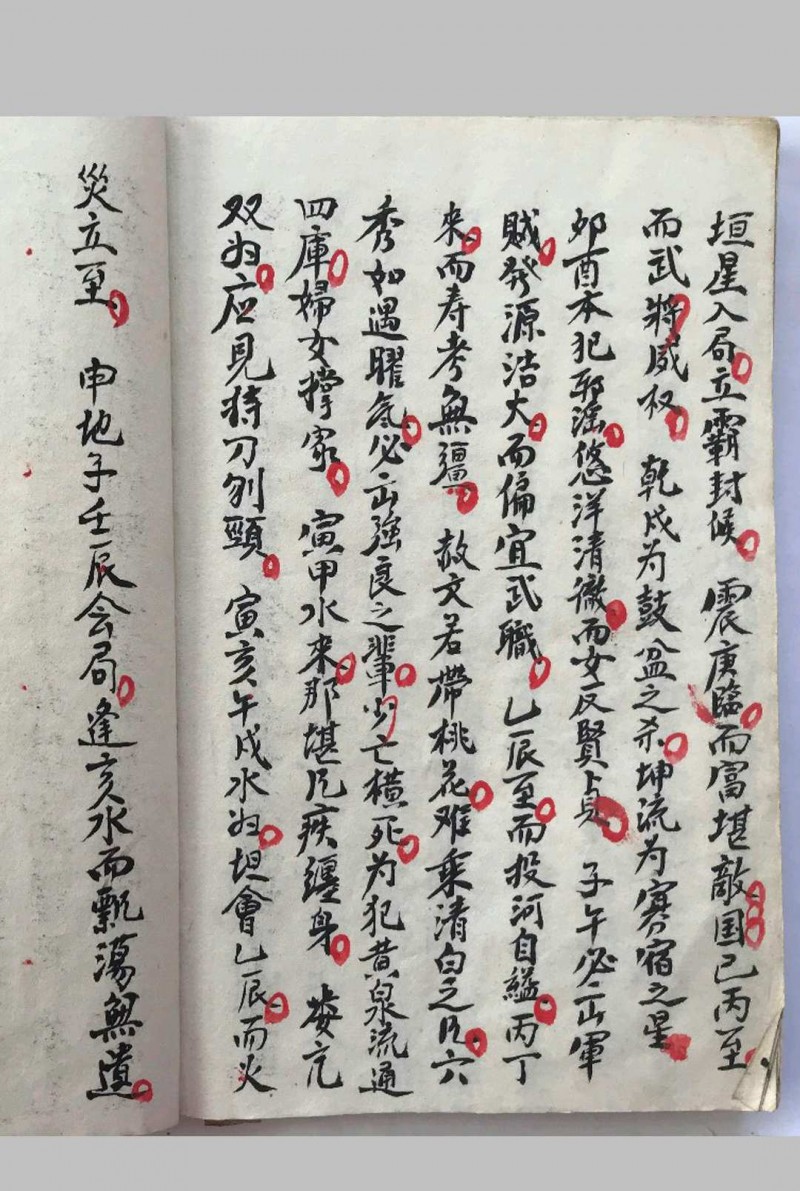 垣星入局立霸封候　震庚臨而富堪敵国巳丙至
而武將威权　乾戌为鼓盆之杀坤流为寡宿之星
卯酉本犯邪滛悠洋清徹而女反賢貞　子午必出军
賊發源浩大而偏宜武職　乙辰至而投河自縊丙丁
來而寿考無疆　赦文若帶桃花难乘清白之凡穴
秀如遇曜氣必出强良之輩少亡橫死为犯黄泉流通
四庫婦女撑家　寅甲水來那堪凡疾纏身　
双妇应見持刀刎頸　寅亥午戌水妇坦會乙辰而火
災立至　申地子壬辰会局逢亥水而飄蕩無遺